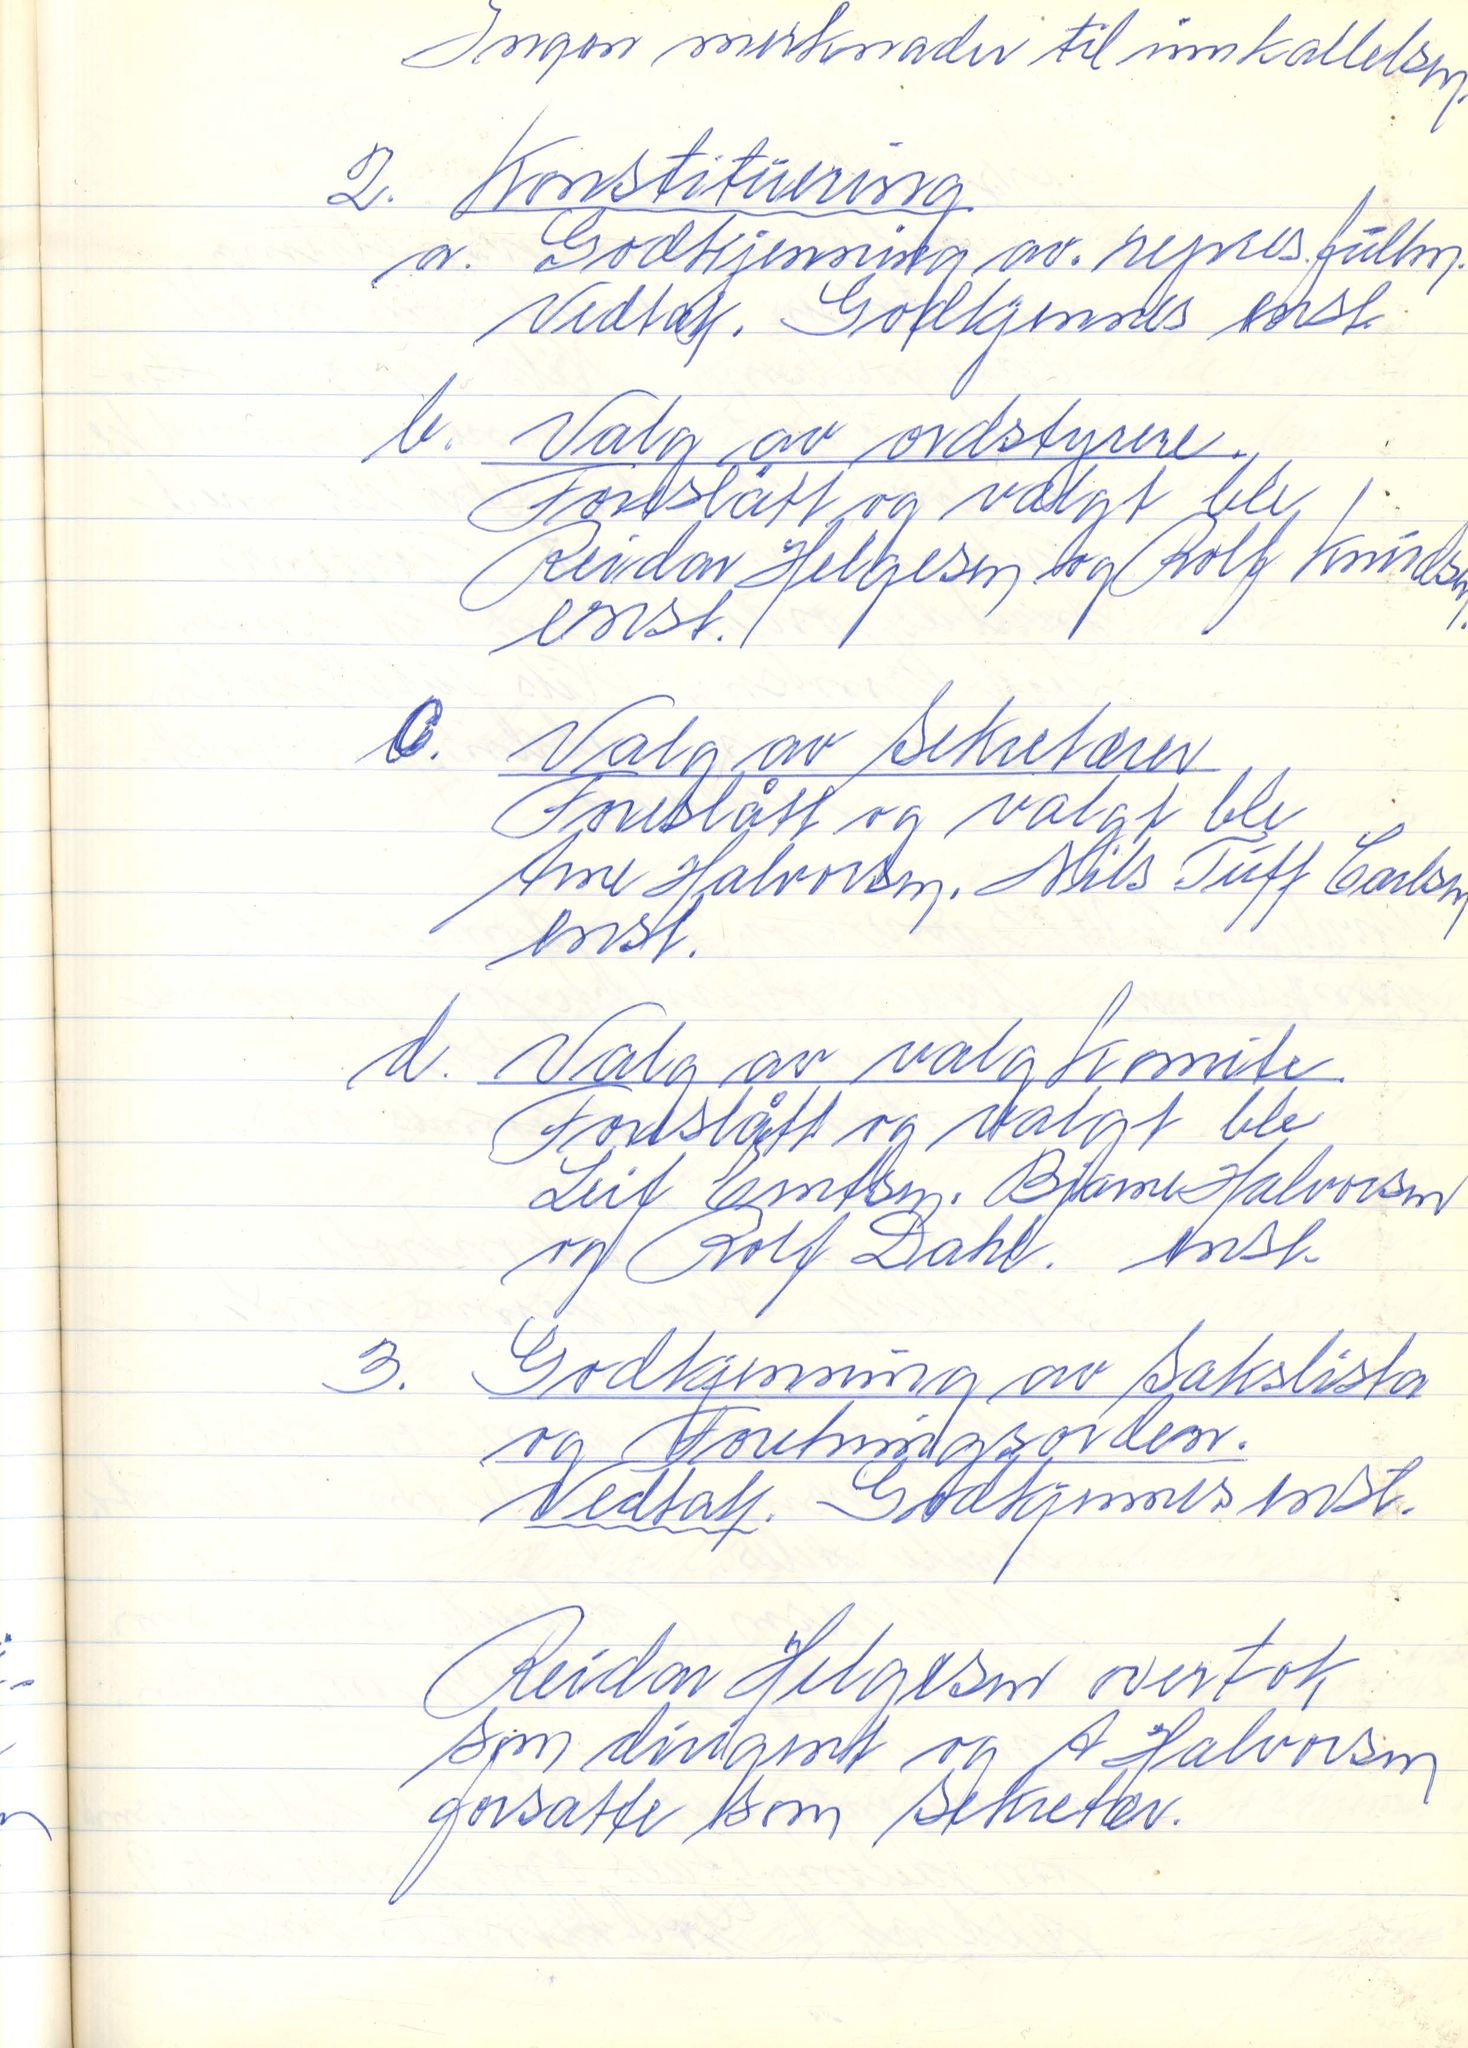 Ingen merknader til innkallelsen.
2. Konstituering
a. Godkjenning av. repres. fullm.
Vedtak. Godkjennes enst.
b. Valg av ordstyrere.
Foreslått og valgt ble
Reidar Helgesen og Rolf Knudsen
enst.
c. Valg av Sekretærer
Foreslått og valgt ble
Arne Halvorsen. Nils Tuff Carlsen
enst.
d. Valg av valgkomite.
Foreslått og valgt ble
Leif Bjarne Halvorsen
og Rolf Dahl. enst.
3. Godkjenning av Sakslista
og Foretningsorden.
Vedtak. Godkjennes enst.
Reidar Helgesen overtok
som dirigent og A Halvorsen
forsatte som Sekretær.